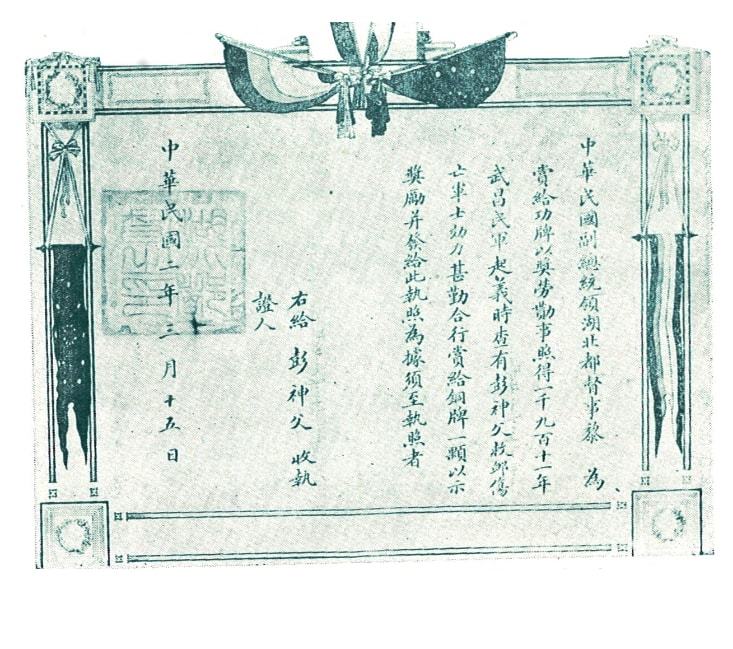 中華民國副總統領湖北都督事黎 為
賞給功牌以奬勞勩事照得一千九百十一年
武昌民軍起義時查有彭神父救卹傷
亡軍士効力甚勤合行賞給銅牌一顆以示
奬勵并發給此執照為據須至執照者
右給 彭神父 收執
證人
中華民國二年三月十五日